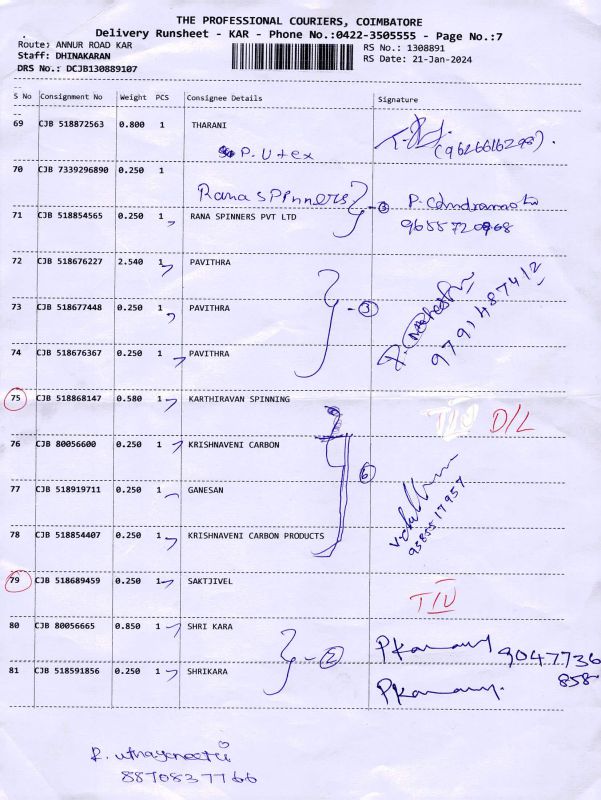 THE PROFESSIONAL COURIERS, COIMBATORE
Delivery Runsheet - KAR - Phone No.:0422-3505555 - Page No.:7
Route: ANNUR ROAD KAR RS No.: 1308891
Staff: DHINAKARAN RS Date: 21-Jan-2024
DRS No.: DCJB130889107
S No Consignment No Weight PCS Consignee Details Signature
69 CJB 518872563 0.800 1 THARANI
P. Utex (9626616298).
70 CJB 7339296890 0.250 1
Rana spinners 3 P.
71 CJB 518854565 0.250 1 RANA SPINNERS PVT LTD 9655720968
72 CJB 518676227 2.540 1 PAVITHRA
73 CJB 518677448 0.250 1 PAVITHRA 3 9791487412
74 CJB 518676367 0.250 1 PAVITHRA
75 CJB 518868147 0.580 1 KARTHIRAVAN SPINNING D/L
76 CJB 80056600 0.250 1 KRISHNAVENI CARBON 6
77 CJB 518919711 0.250 1 GANESAN 9585517957
78 CJB 518854407 0.250 1 KRISHNAVENI CARBON PRODUCTS
79 CJB 518689459 0.250 1 SAKTJIVEL
80 CJB 80056665 0.850 1 SHRI KARA 2 9047736
858
81 CJB 518591856 0.250 1 SHRIKARA
8870837766